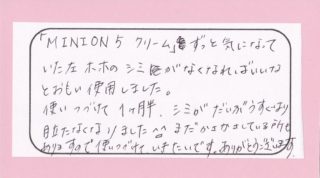 「MINION5 クリーム」ずっと気になって
いた左ホホのシミがなくなればいいな
とおもい使用しました。
使いつづけて1ヶ月半、シミがだいぶうすくなり
目立たなくなりました^^まだかさかさしている所も
ありますので使いつづけていきたいです。ありがとうございます